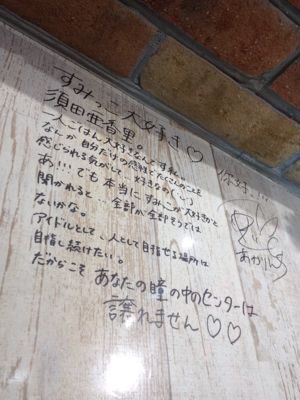 すみっこ大好き♡
須田亜香里。
一人ごはん大好きなんです私。
なんか自分だけの感性とたくさんのことを
感じられる気がして、好きなの(´-`)
あ…でも本当にすみっこが大好きかと
聞かれると…全部が全部そうでは
ないかな。
アイドルとして、人として目指せる場所は
目指し続けたい。
だからこそ あなたの瞳の中のセンターは
譲れません♡♡
你好
あかりん